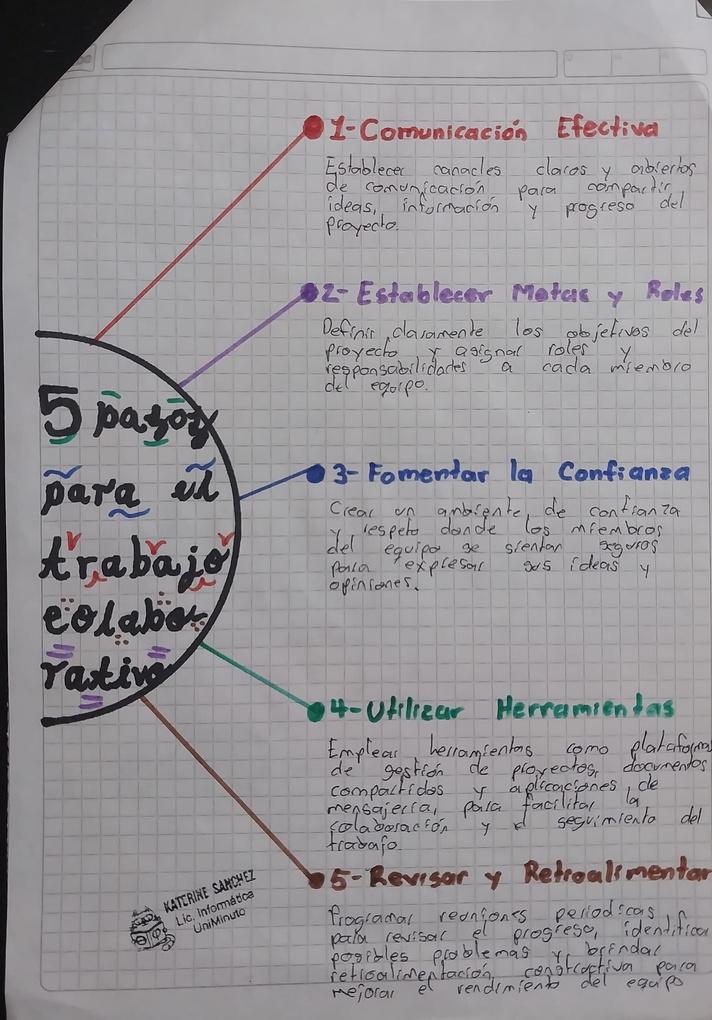 5 pasos
para el
trabajo
colabo-
rativo
1-Comunicación Efectiva
Establecer canacles claros y abiertos
de comunicación para compartir
ideas, información y progreso del
proyecto.
2- Establecer Metas y Roles
Definir claramente los objetivos del
proyecto y asignar roles y
responsabilidades a cada miembro
del equipo.
3- Fomentar la Confianza
Crear un ambiente de confianza
y respeto donde los miembros
del equipo se sientan seguros
para expresar sus ideas y
opiniones.
4-Utilizar Herramientas
Emplear herramientas como plataformas
de gestión de proyectos, documentos
compartidos y aplicaciones de
mensajería, para facilitar la
colaboración y el seguimiento del
trabajo
5-Revisar y Retroalimentar
Programar reuniones periodicas
para revisar el progreso, identificar
posibles problemas y brindar
retroalimentación constructiva para
mejorar el rendimiento del equipo
KATERINE SANCHEZ
Lic. Informática
UniMinuto